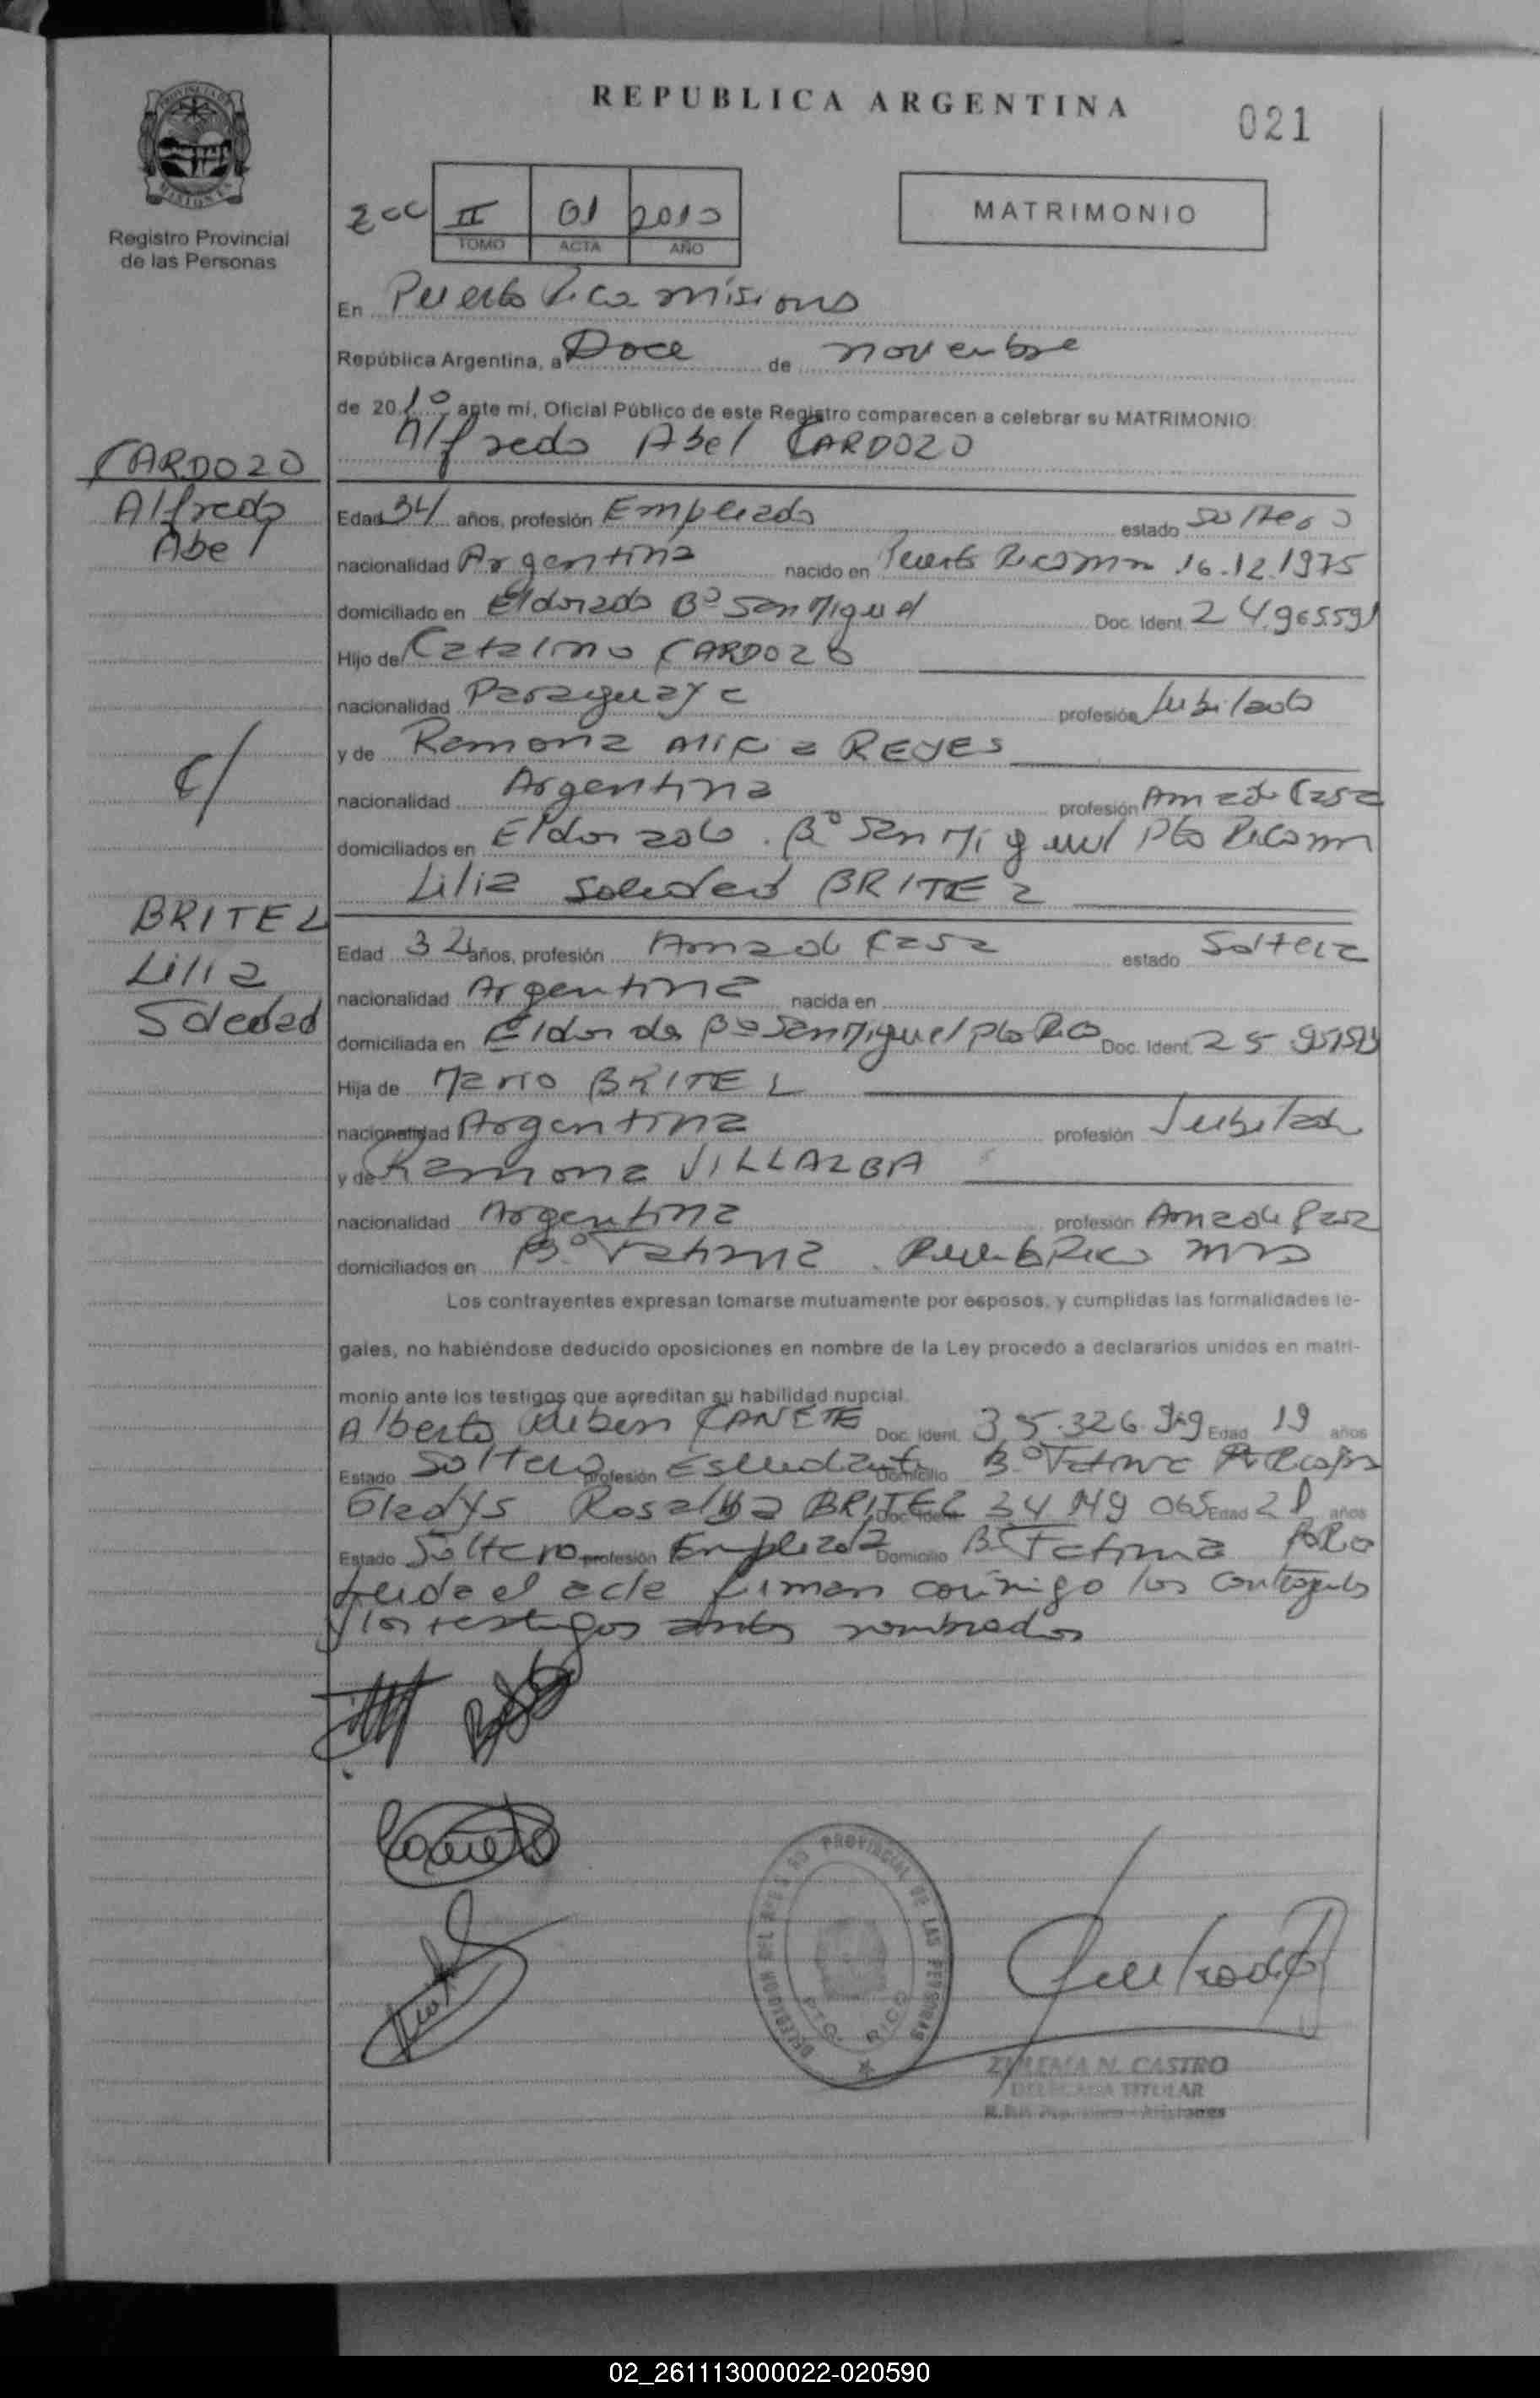 REPUBLICA ARGENTINA
021
PROVINCIA DE
MISIONES
Registro Provincial
de las Personas
II 01 2010
TOMO ACTA AÑO
MATRIMONIO
En Puerto Rico misiones
República Argentina, a Doce de noviembre
de 2010 ante mí, Oficial Público de este Registro comparecen a celebrar su MATRIMONIO
Alfredo Abel CARDOZO
CARDOZO
Alfredo
Abel
Edad 34 años, profesión Empleado estado soltero
nacionalidad Argentina nacido en Puerto Rico mn 16.12.1975
domiciliado en Eldorado Bº San Miguel Doc. Ident. 24.965.591
Hijo de Catalino CARDOZO
nacionalidad Paraguaya profesión Jubilado
y de Ramona Alicia REYES
nacionalidad Argentina profesión Ama de Casa
domiciliados en Eldorado Bº San Miguel Pto Rico mn
c/
Lilia Soledad BRITEZ
BRITEZ
Lilia
Soledad
Edad 32 años, profesión Ama de Casa estado Soltera
nacionalidad Argentina nacida en
domiciliada en Bº San Miguel Pto Rico Doc. Ident. 25
Hija de Mario BRITEZ
nacionalidad Argentina profesión Jubilado
y de Ramona VILLALBA
nacionalidad Argentina profesión Ama de Casa
domiciliados en Bº Fatima Puerto Rico mns
Los contrayentes expresan tomarse mutuamente por esposos, y cumplidas las formalidades le-
gales, no habiéndose deducido oposiciones en nombre de la Ley procedo a declararlos unidos en matri-
monio ante los testigos que acreditan su habilidad nupcial.
Alberto Ruben CAÑETE Doc. Ident. 35.326. Edad 19 años
Estado Soltero profesión Estudiante Domicilio Bº Fatima
Gladys BRITEZ Doc. Ident. 34 149 065 Edad 21 años
Estado Soltero profesión Empleada Domicilio Bº Fatima
Leida el acta firman conmigo los contrayentes
y los testigos antes nombrados
DELEGACION DEL REGISTRO PROVINCIAL DE LAS PERSONAS
PTO. RICO
ZULEMA N. CASTRO
DELEGADA TITULAR
02_261113000022-020590